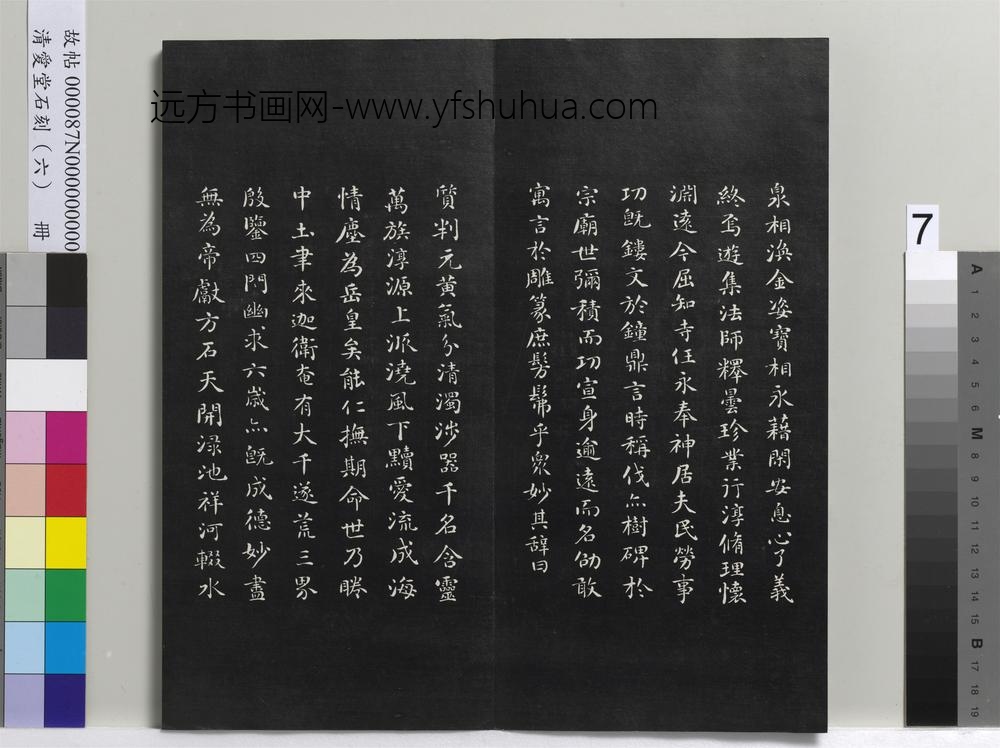 泉相渙金姿寶相永藉閑安息心了義
終焉遊集法師釋曇珍業行淳脩理懷
淵遠今屈知寺任永奉神居夫民勞事
功既鏤文於鐘鼎言時稱伐亦樹碑於
宗廟世彌積而功宣身逾遠而名劭敢
寓言於雕篆庶髣髴乎眾妙其辭曰
質判元黃氣分清濁涉器千名含靈
萬族淳源上派澆風下黷愛流成海
情塵為岳皇矣能仁撫期命世乃睠
中土聿來迦衛奄有大千遂荒三界
殷鑒四門幽求六歲亦既成德妙盡
無為帝獻方石天開淥池祥河輟水
远方书画网-www.yfshuhua.com
故帖 000087N000000000
清愛堂石刻（六） 冊
7
A 1 2 3 4 5 6 M 8 9 10 11 12 13 14 15 B 17 18 19